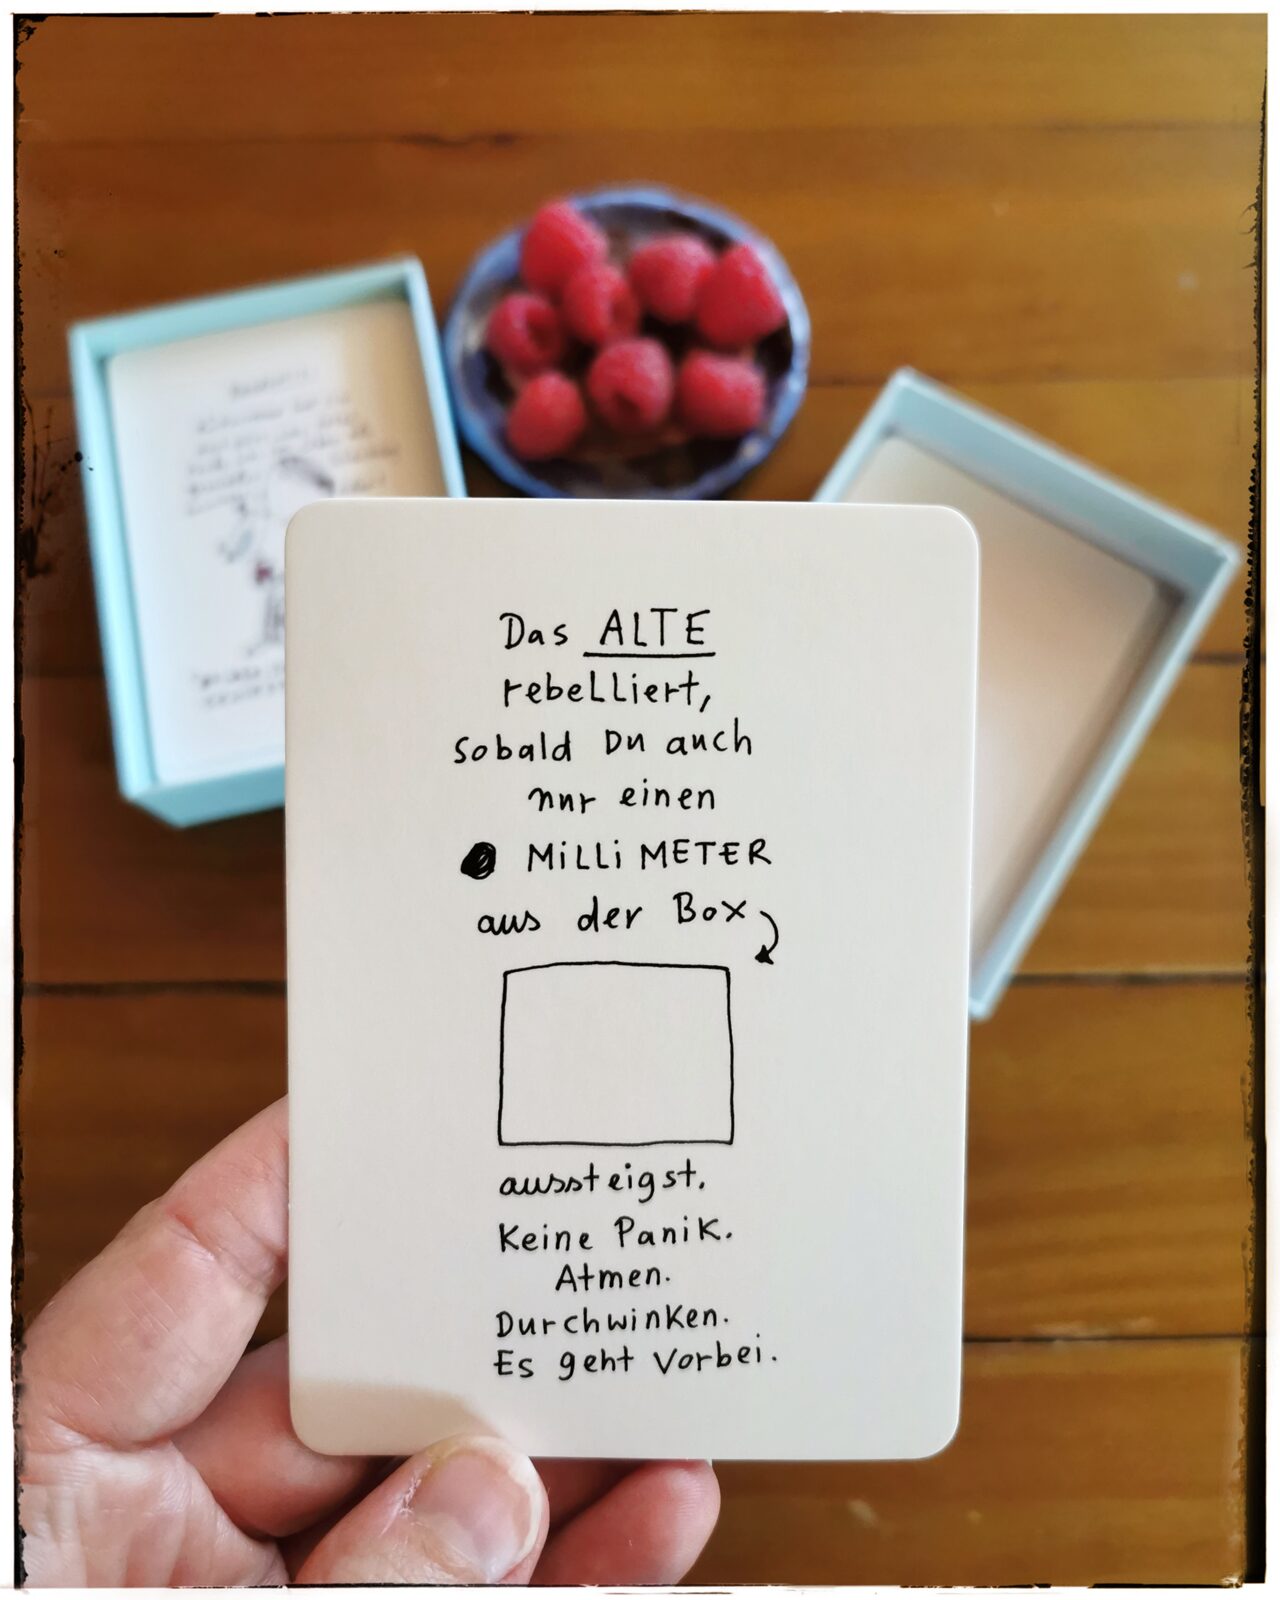 Das ALTE
rebelliert,
sobald Du auch
nur einen
MilliMETER
aus der Box
aussteigst.
Keine Panik.
Atmen.
Durchwinken.
Es geht vorbei.